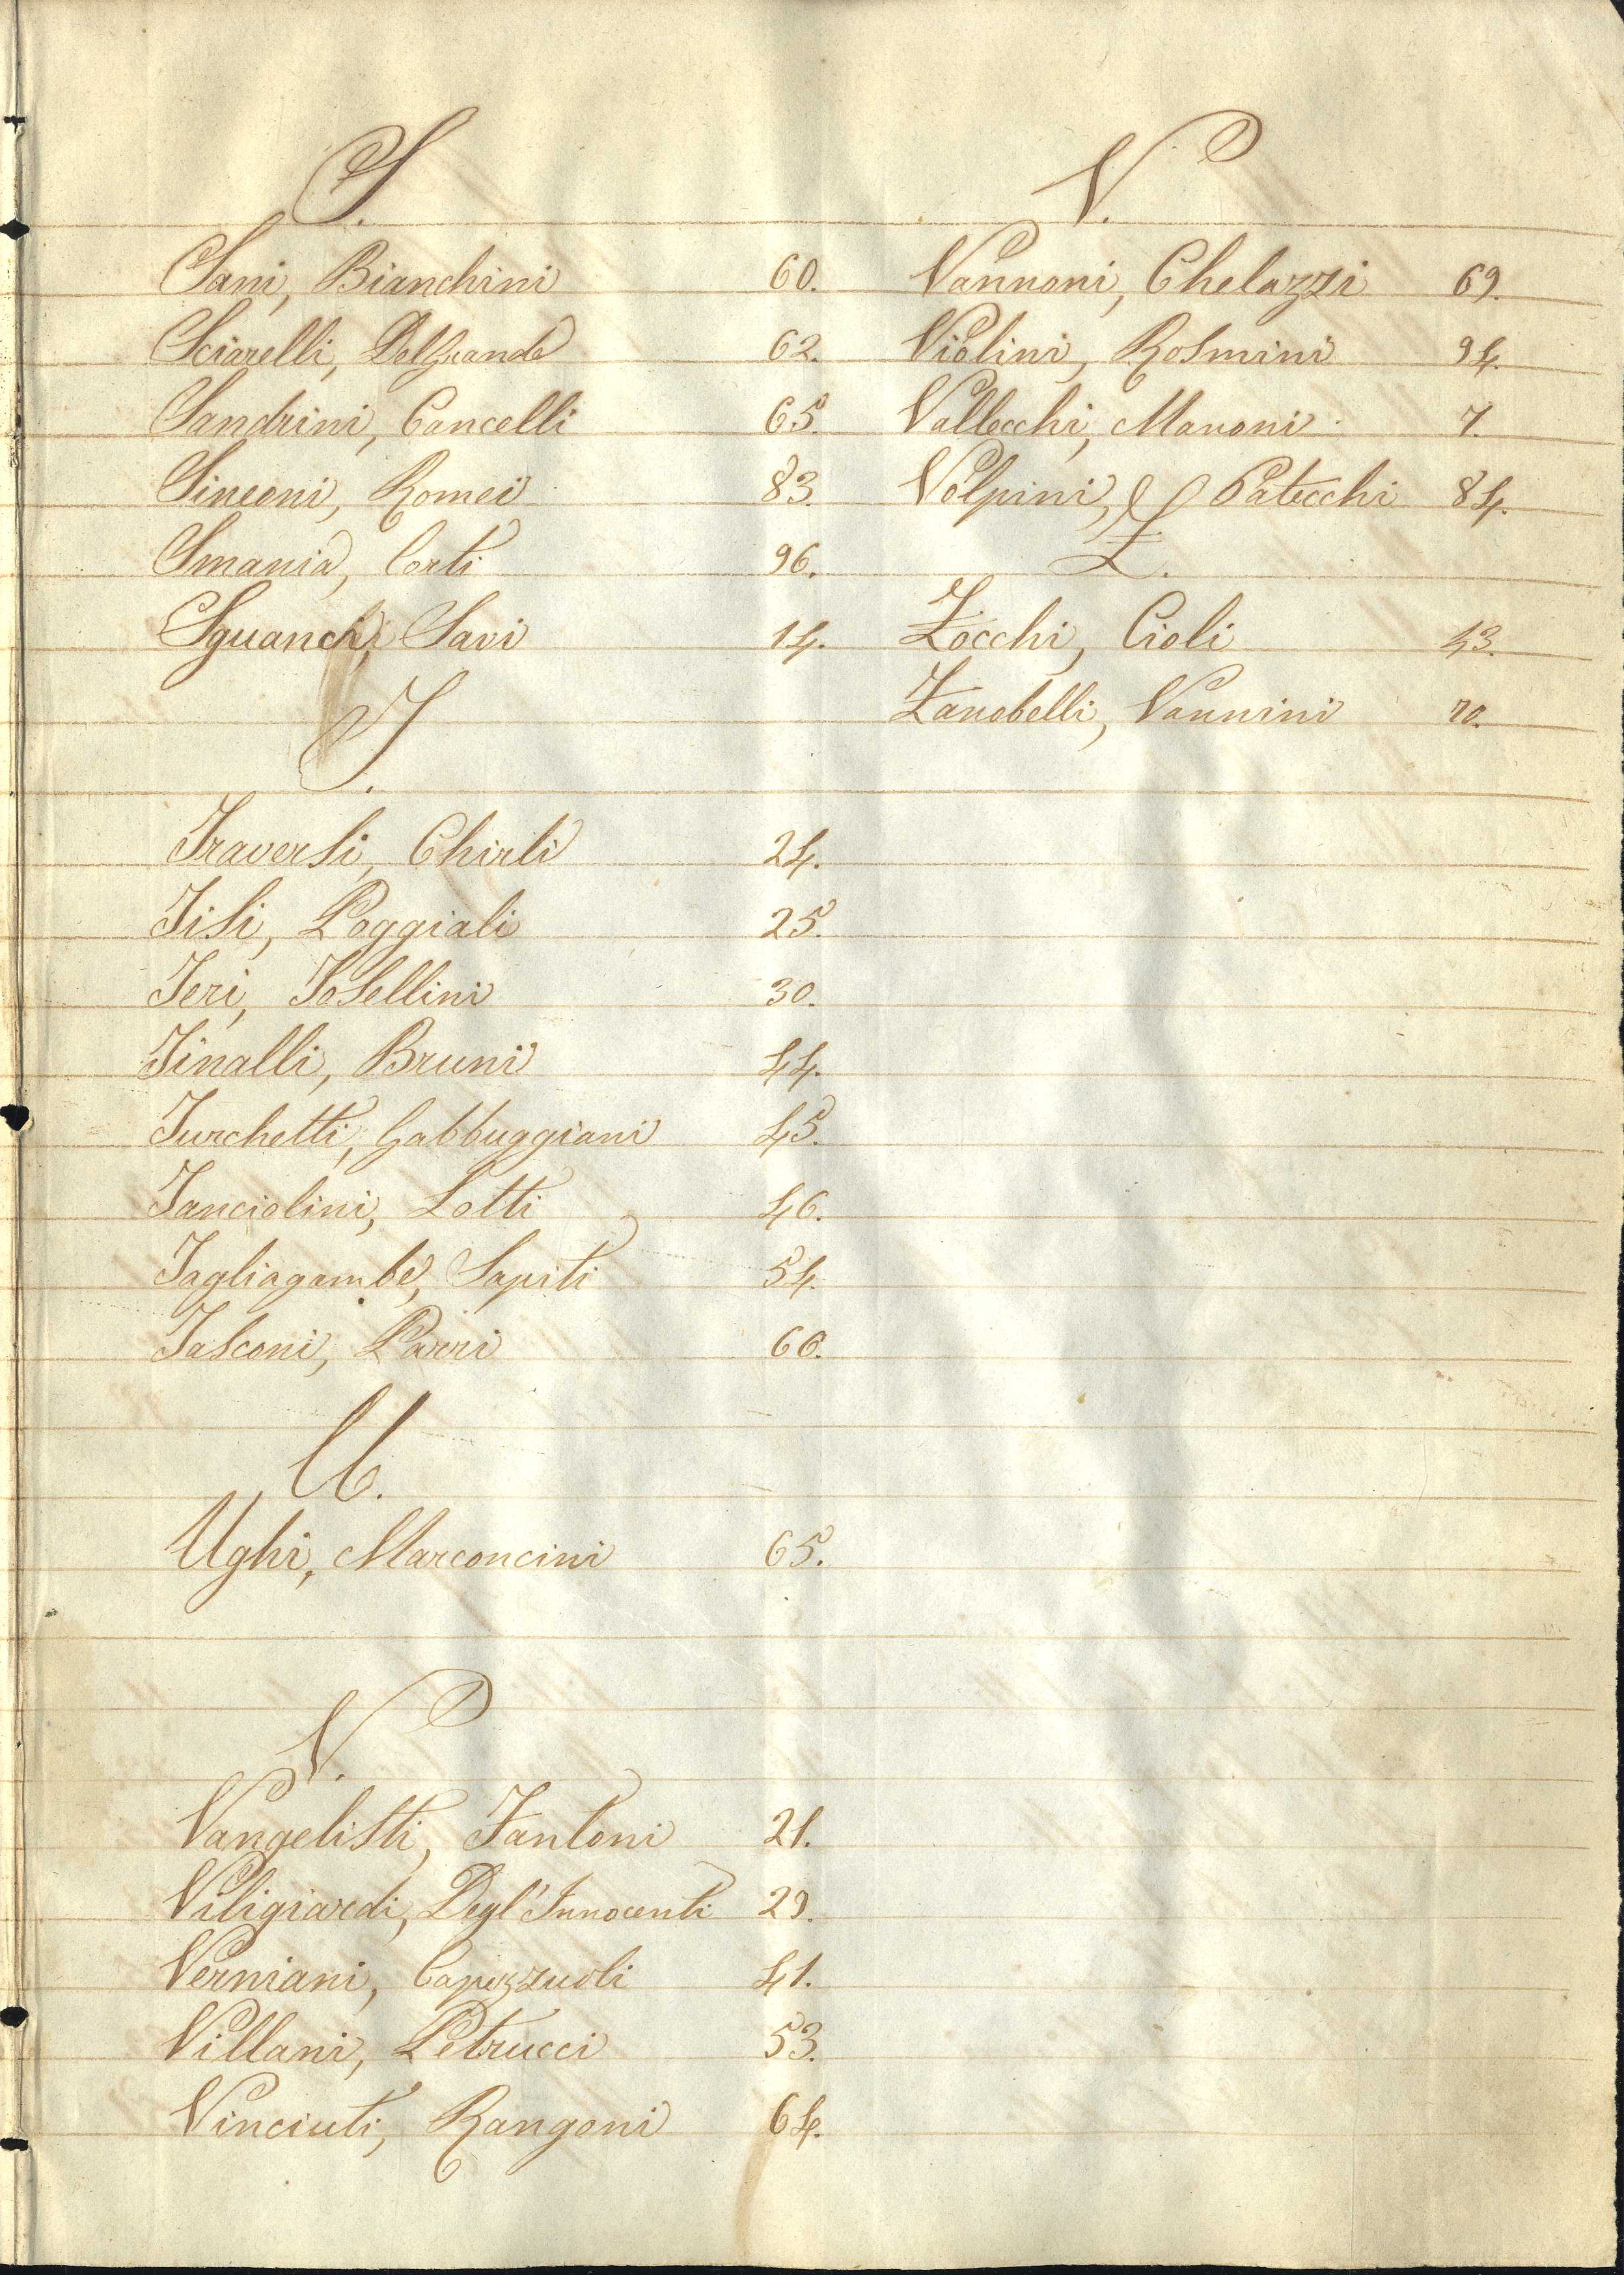 S.
Sani, Bianchini 60.
Sciarelli, DelGrande 62.
Sandrini, Cancelli 65.
Simeoni, Romei 83.
Smania, Corti 96.
Sguanci, Savi 14.
T.
Traversi, Chirli 24.
Tisi, Poggiali 25.
Teri, Tosellini 30.
Tinalli, Bruni 44.
Turchetti, Gabbuggiani 45.
Tanciolini, Lotti 46.
Tagliagambe, Sapiti 54.
Tasconi, Parri 66.
U.
Ughi, Marconcini 65.
V.
Vangelisti, Fantoni 21.
Viligiardi, Degl'Innocenti 29.
Verniani, Capezzuoli 41.
Villani, Petrucci 53.
Vinciuti, Rangoni 64.
V.
Vannoni, Chelazzi 69.
Violini, Rosmini 94.
Vallecchi, Manoni 7.
Volpini, Patecchi 84.
Z.
Zocchi, Cioli 43.
Zanobelli, Vannini 70.